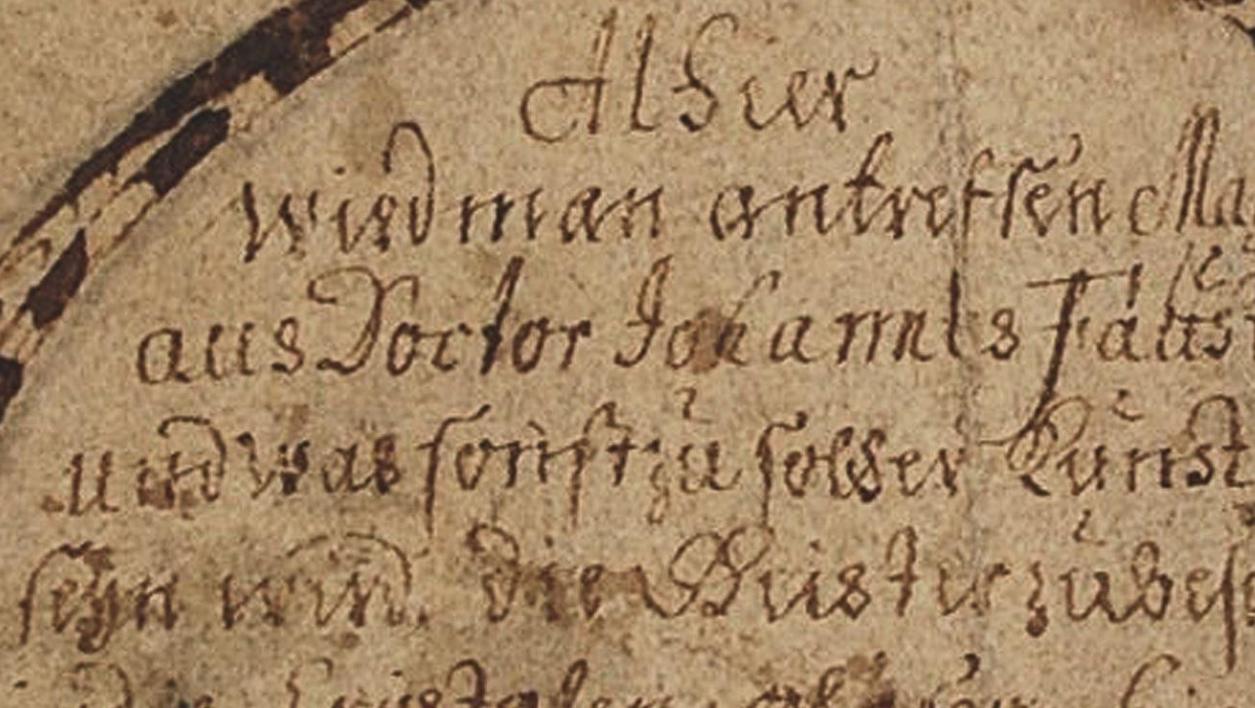 Alhier
wird man antreffen Ma
aus Doctor Johannes Faust
und was sonst zu solcher Kunst
seyn wird. die Geister zu bes
in die Cristalen